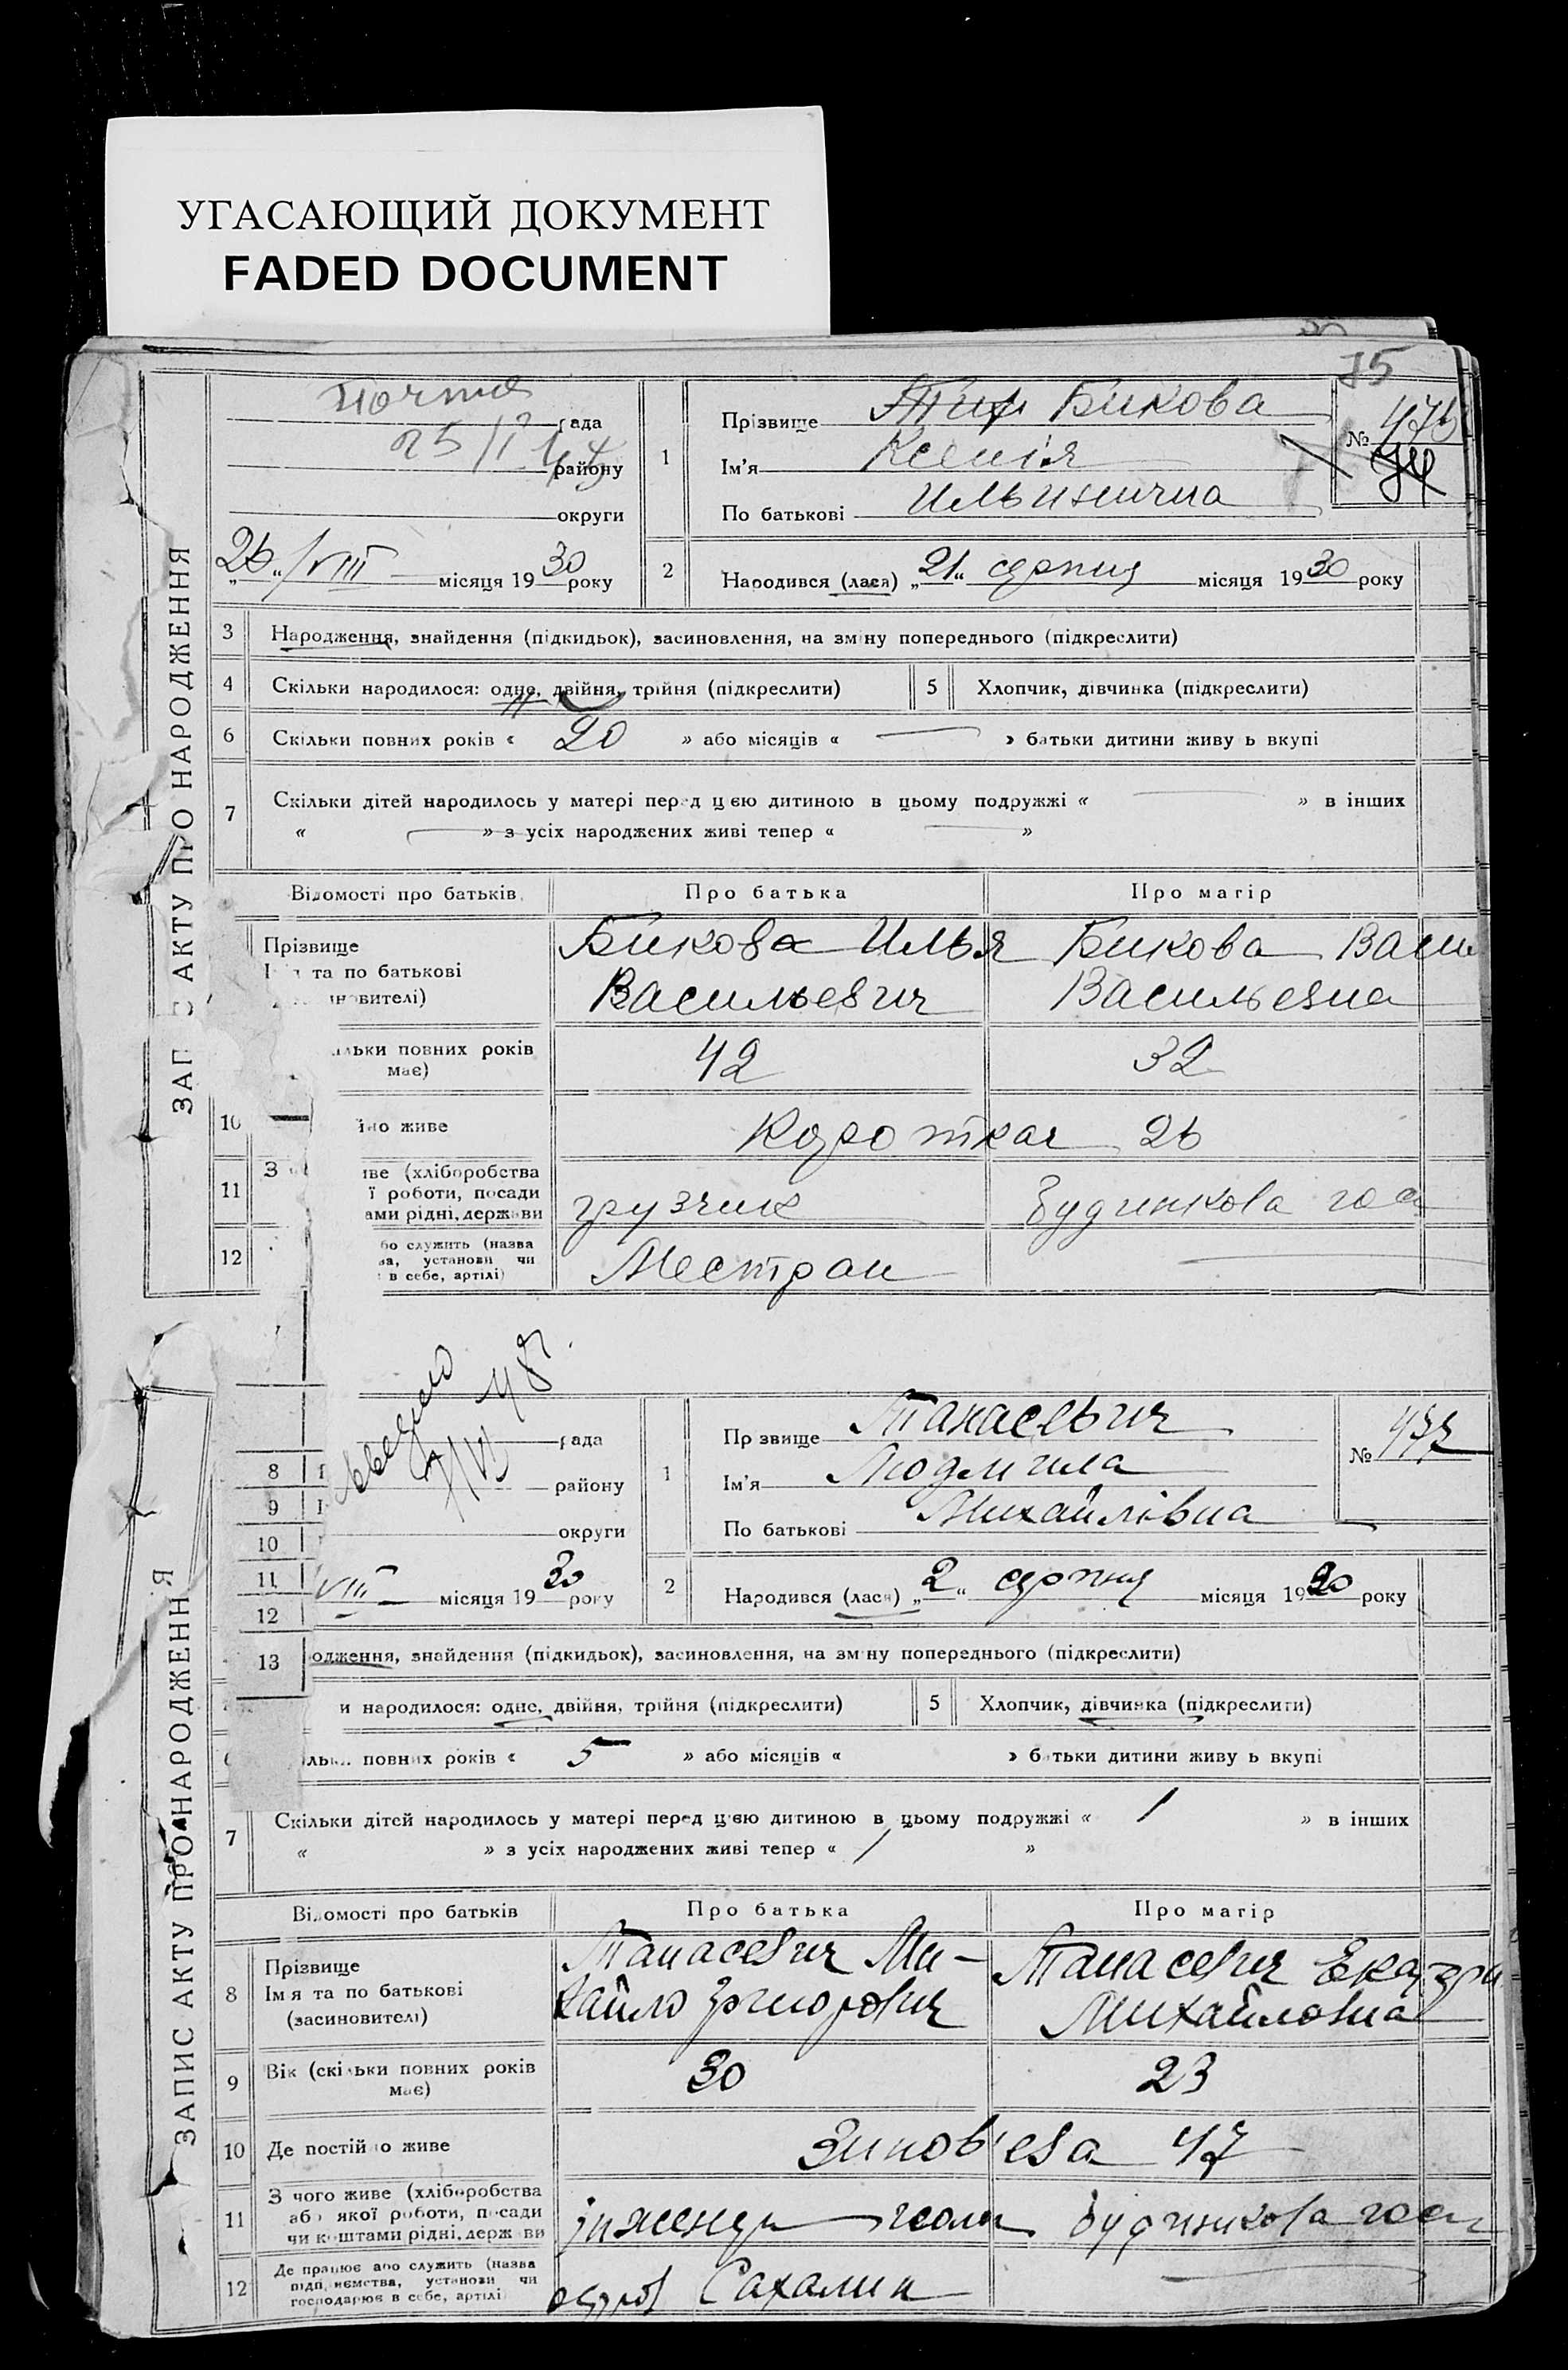 УГАСАЮЩИЙ ДОКУМЕНТ
FADED DOCUMENT
75
ЗАП АКТУ ПРО НАРОДЖЕННЯ
рада
району
округи
26 VIII місяця 1930 року
1
Прізвище Бикова
Ім'я Ксенія
По батькові Ильинична
№ 476
2
Народився (лася) „21“ серпня місяця 1930 року
3 Народження, знайдення (підкидьок), засиновлення, на зміну попереднього (підкреслити)
4 Скільки народилося: одне, двійня, трійня (підкреслити) 5 Хлопчик, дівчинка (підкреслити)
6 Скільки повних років « 20 » або місяців « — » батьки дитини живу ь вкупі
7 Скільки дітей народилось у матері перед цією дитиною в цьому подружжі « — » в інших
« — » з усіх народжених живі тепер « — »
Відомості про батьків Про батька Про матір
Прізвище
та по батькові
новителі)
Бикова Илья
Васильевич
Бикова Васи
Васильевна
льки повних років
має)
42 32
10 но живе Короткая 26
11 З іве (хліборобства
ї роботи, посади
ами рідні, держави
грузчик будинкова гос
12 бо служить (назва
ва, установи чи
в себе, артілі)
Местран —
8
9
10
11
12
13
ЗАПИС АКТУ ПРО НАРОДЖЕННЯ
рада
району
округи
VIII місяця 1930 року
1
Пр звище Танасевич
Ім'я Людмила
По батькові Михайлівна
№ 477
2
Народився (лася) „2“ серпня місяця 1930 року
одження, знайдення (підкидьок), засиновлення, на зм ну попереднього (підкреслити)
и народилося: одне, двійня, трійня (підкреслити) 5 Хлопчик, дівчинка (підкреслити)
повних років « 5 » або місяців « » батьки дитини живу ь вкупі
7 Скільки дітей народилось у матері перед цією дитиною в цьому подружжі « 1 » в інших
« » з усіх народжених живі тепер « 1 »
Відомості про батьків Про батька Про матір
8 Прізвище
Ім я та по батькові
(засиновителі)
Танасевич Ми-
хайло Григорович
Танасевич Екатери
Михайловна
9 Вік (скільки повних років
має)
30 23
10 Де постійно живе Зинов'ева 47
11 З чого живе (хліборобства
або якої роботи, посади
чи коштами рідні, держави
інженер геолог будинкова гос
12 Де працює або служить (назва
підприємства, установи чи
господарює в себе, артілі
остров Сахалин —